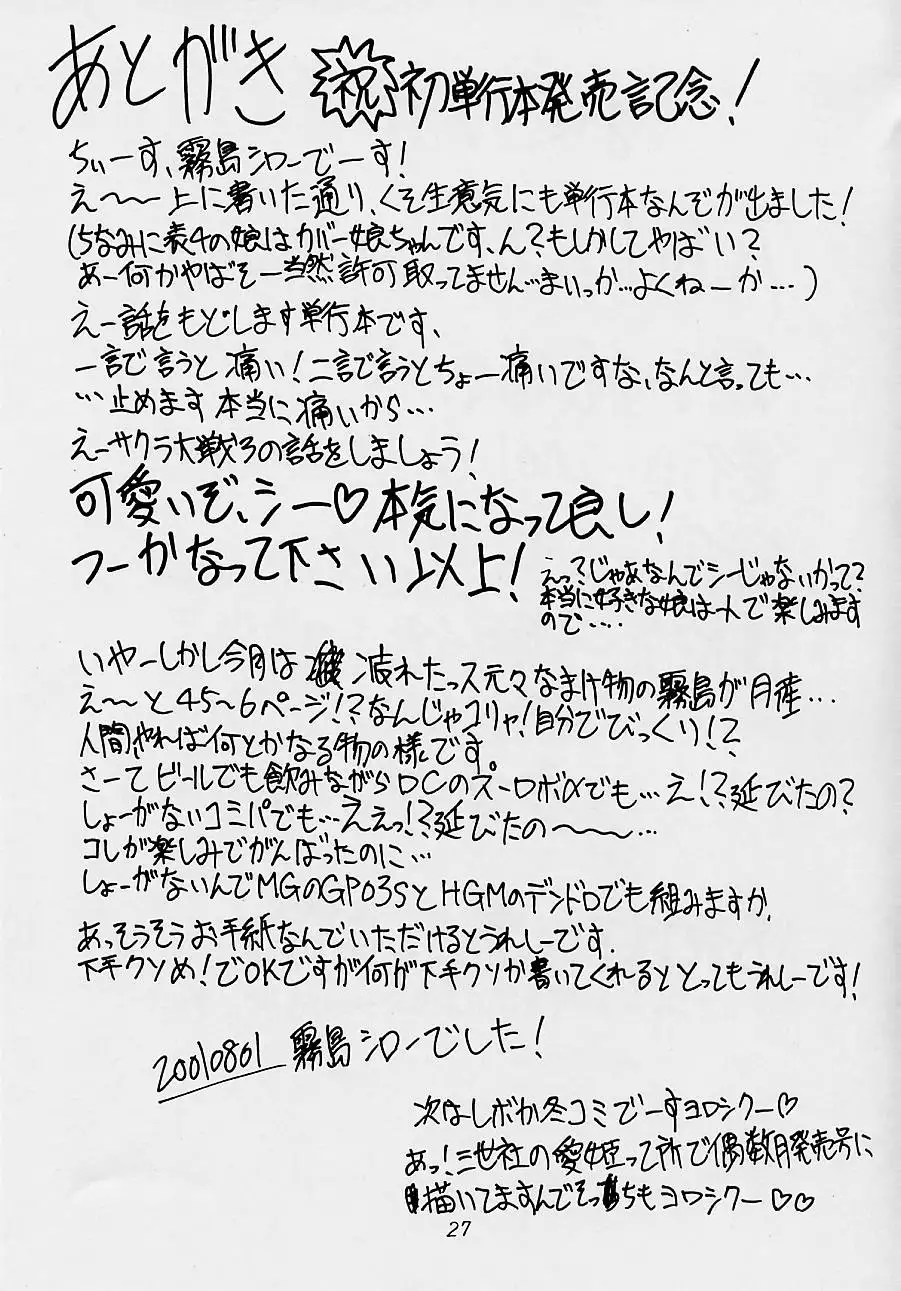 あとがき 祝 初単行本発売記念!
ちぃーす、霧島シローでーす!
え〜〜上に書いた通り、くそ生意気にも単行本なんぞが出ました!
(ちなみに表4の娘はカバー娘ちゃんです、ん?もしかしてやばい?
あー何かやばそー当然許可取ってません…まいっか…よくねーか…)
えー話をもどします単行本です、
一言で言うと痛い!二言で言うとちょー痛いですな、なんと言っても…
…止めます本当に痛いから…
えーサクラ大戦3の話をしましょう!
可愛いぞ、シー♡本気になって良し!
つーかなって下さい以上!
えっ?じゃあなんでシーじゃないかって?
本当に好きな娘は一人で楽しみます
ので…‥
いやーしかし今月は 疲れたっス元々なまけ物の霧島が月産…
え〜と45〜6ページ!?なんじゃコリャ!自分でびっくり!?
人間やれば何とかなる物の様です
さーてビールでも飲みながらDCのスーロボαでも…え!?延びたの?
しょーがないコミパでも…ええっ!?延びたの〜〜〜…
コレが楽しみでがんばったのに…
しょーがないんでMGのGP03SとHGMのデンドロでも組みますか、
あっそうそうお手紙なんでいただけるとうれしーです.
下手クソめ!でOKですが何が下手クソか書いてくれるととってもうれしーです!
20010801 霧島シローでした!
次はしボか冬コミでーすヨロシクー♡
あっ!三世社の愛姫って所で偶数月発売号に
描いてますんでそっちもヨロシクー♡♡
27